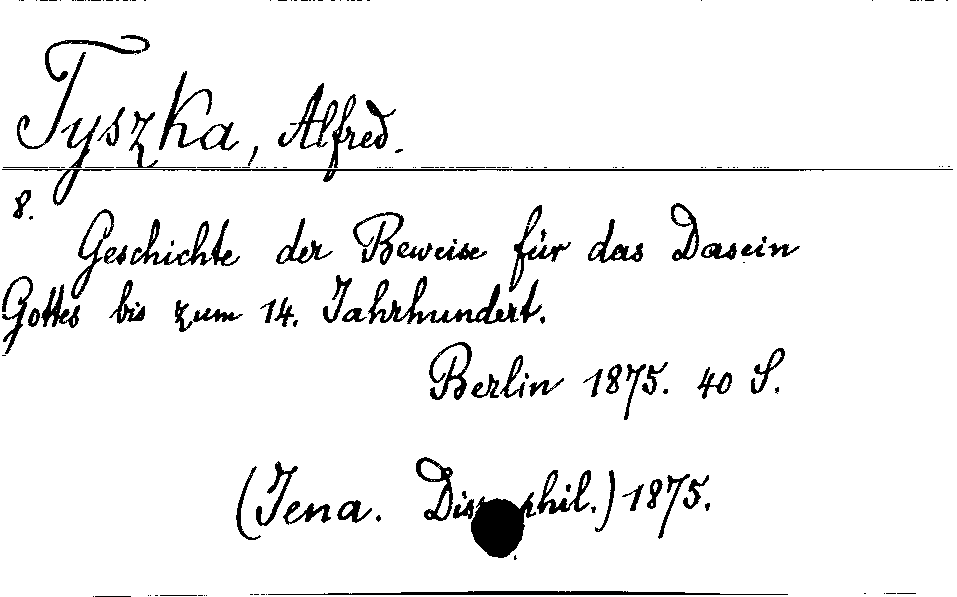 Tyszka, Alfred.
8.
Geschichte der Beweise für das Dasein
Gottes bis zum 14. Jahrhundert.
Berlin 1875. 40 S.
(Jena. Diss. phil.) 1875.